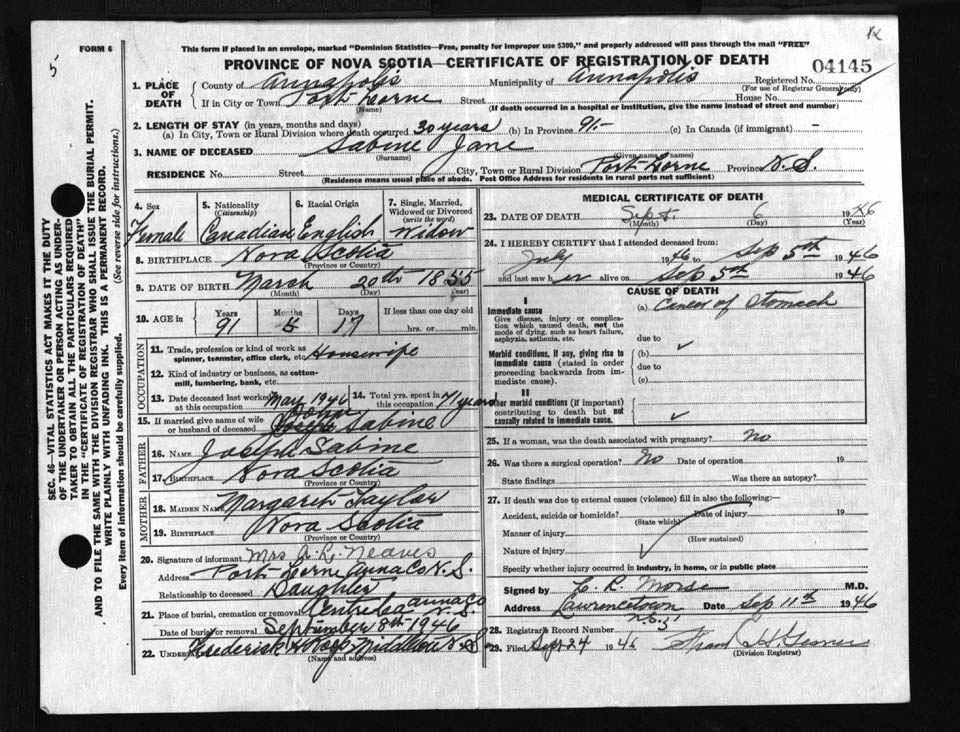 5
FORM 6
This form if placed in an envelope, marked "Dominion Statistics—Free, penalty for improper use $300," and properly addressed will pass through the mail "FREE"
PROVINCE OF NOVA SCOTIA—CERTIFICATE OF REGISTRATION OF DEATH 04145
1. PLACE OF DEATH County of Annapolis Municipality of Annapolis Registered No.
(For use of Registrar General only)
If in City or Town Port Lorne Street House No.
(Name) (If death occurred in a hospital or institution, give the name instead of street and number)
2. LENGTH OF STAY (in years, months and days)
(a) In City, Town or Rural Division where death occurred 30 years (b) In Province 91- (c) In Canada (if immigrant) -
3. NAME OF DECEASED Sabine Jane
(Surname) (Given name or names)
RESIDENCE No. Street City, Town or Rural Division Port Lorne Province N.S.
(Residence means usual place of abode. Post Office Address for residents in rural parts not sufficient)
SEC. 46—VITAL STATISTICS ACT MAKES IT THE DUTY
OF THE UNDERTAKER OR PERSON ACTING AS UNDER-
TAKER TO OBTAIN ALL THE PARTICULARS REQUIRED
IN THE "CERTIFICATE OF REGISTRATION OF DEATH"
AND TO FILE THE SAME WITH THE DIVISION REGISTRAR WHO SHALL ISSUE THE BURIAL PERMIT.
WRITE PLAINLY WITH UNFADING INK. THIS IS A PERMANENT RECORD.
Every item of information should be carefully supplied. (See reverse side for instructions.)
4. Sex Female
5. Nationality (Citizenship) Canadian
6. Racial Origin English
7. Single, Married, Widowed or Divorced (write the word) Widow
8. BIRTHPLACE Nova Scotia
(Province or Country)
9. DATE OF BIRTH March 20th 1855
(Month) (Day) (Year)
10. AGE in Years 91 Months 5 Days 17 If less than one day old
hrs. or min.
OCCUPATION
11. Trade, profession or kind of work as
spinner, teamster, office clerk, etc. Housewife
12. Kind of industry or business, as cotton-
mill, lumbering, bank, etc.
13. Date deceased last worked at this occupation May 1946 14. Total yrs. spent in this occupation 71 years
15. If married give name of wife or husband of deceased John Sabine
FATHER
16. NAME Joseph Sabine
17. BIRTHPLACE Nova Scotia
(Province or Country)
MOTHER
18. MAIDEN NAME Margaret Taylor
19. BIRTHPLACE Nova Scotia
(Province or Country)
20. Signature of informant Mrs R. Neaves
Address Port Lorne Anna Co N.S.
Relationship to deceased Daughter
21. Place of burial, cremation or removal Anna Co N.S.
Date of burial or removal September 8th 1946
22. Undertaker Frederick N.S.
(Name and address)
MEDICAL CERTIFICATE OF DEATH
23. DATE OF DEATH Sept 6 1946
(Month) (Day) (Year)
24. I HEREBY CERTIFY that I attended deceased from:
July 1946 to Sep 5th 1946
and last saw her alive on Sep 5th 1946
CAUSE OF DEATH
I
Immediate cause (a) Cancer of Stomach
Give disease, injury or complica-
tion which caused death, not the
mode of dying, such as heart failure,
asphyxia, asthenia, etc. due to
Morbid conditions, if any, giving rise to (b)
immediate cause (stated in order
proceeding backwards from im-
mediate cause). due to
(c)
II
Other morbid conditions (if important)
contributing to death but not
causally related to immediate cause.
25. If a woman, was the death associated with pregnancy? No
26. Was there a surgical operation? No Date of operation 19
State findings Was there an autopsy?
27. If death was due to external causes (violence) fill in also the following:—
Accident, suicide or homicide? Date of injury 19
(State which)
Manner of injury
(How sustained)
Nature of injury
Specify whether injury occurred in industry, in home, or in public place
Signed by C R Morse M.D.
Address Lawrencetown Date Sep 11th 1946
28. Registrar's Record Number
29. Filed Sept 24 1946
(Division Registrar)